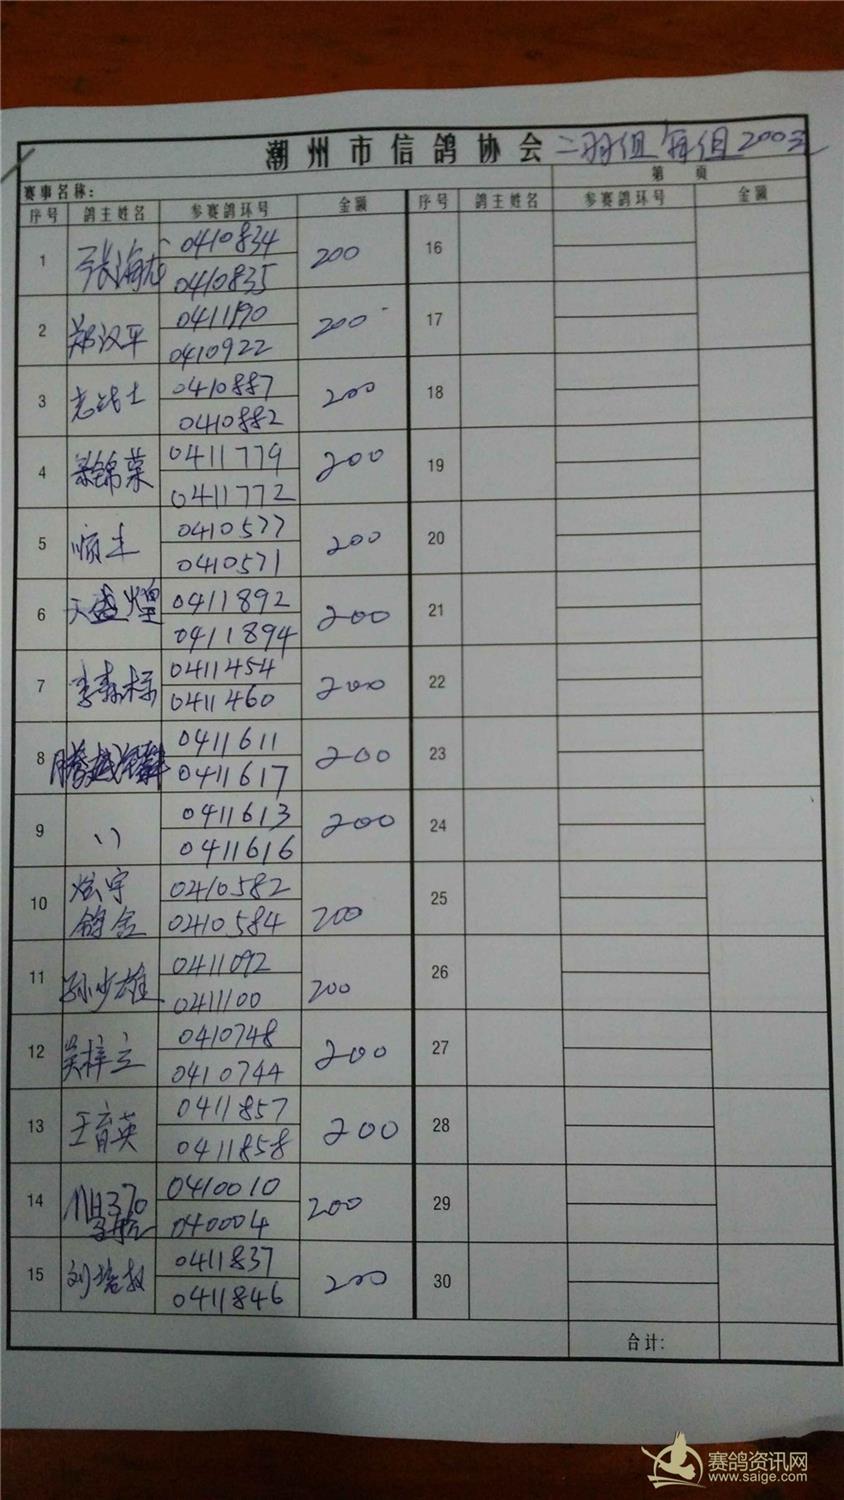 潮州市信鸽协会 二羽组 每组200元
赛事名称: 第 页
序号 鸽主姓名 参赛鸽环号 金额 序号 鸽主姓名 参赛鸽环号 金额
1 张海龙 0410834 200 16
0410835
2 郑汉平 0411190 200 17
0410922
3 老战士 0410887 200 18
0410882
4 锦荣 0411779 200 19
0411772
5 0410577 200 20
0410571
6 天盛煌 0411892 200 21
0411894
7 李森标 0411454 200 22
0411460
8 腾越 0411611 200 23
0411617
9 〃 0411613 200 24
0411616
10 炫宇 0410582 200 25
0410584
11 孙少雄 0411092 200 26
0411100
12 吴梓立 0410748 200 27
0410744
13 王育英 0411857 200 28
0411858
14 370 0410010 200 29
040004
15 刘培 0411837 200 30
0411846
合计:
赛鸽资讯网
www.saige.com